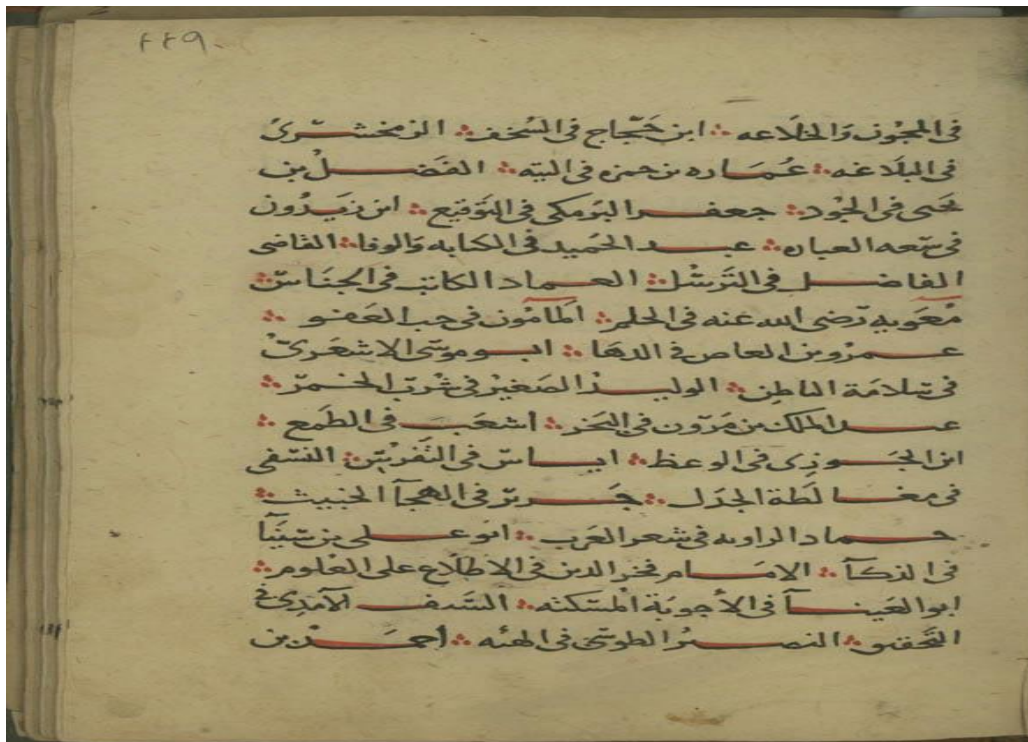 ٤٤٩
فى المجون والخلاعه ابن حجاج فى السخف الزمخشرى
فى البلاغه عماره بن حمزه فى التيه الفضل بن
يحيى فى الجود جعفر البرمكى فى التوقيع ابن زيدون
فى سعه العباره عبد الحميد فى الكتابه والوفا القاضى
الفاضل فى الترسّل العماد الكاتب فى الجناس
معويه رضى الله عنه فى الحلم المامون فى حب العفو
عمرو بن العاص فى الدها ابو موسى الاشعرى
فى سلامة الباطن الوليد الصغير فى شرب الخمر
عبد الملك بن مروان فى البخر اشعب فى الطمع
ابن الجوزى فى الوعظ اياس فى التفرس النسفى
فى مغالطة الجدل جرير فى الهجآ الخبيث
حماد الراويه فى شعر العرب ابو على بن سينآ
فى الذكآ الامام فخر الدين فى الاطلاع على العلوم
ابو العينآ فى الأجوبة المسكته السيف الآمدى فى
التحقيق النصير الطوسى فى الهئه أحمد بن